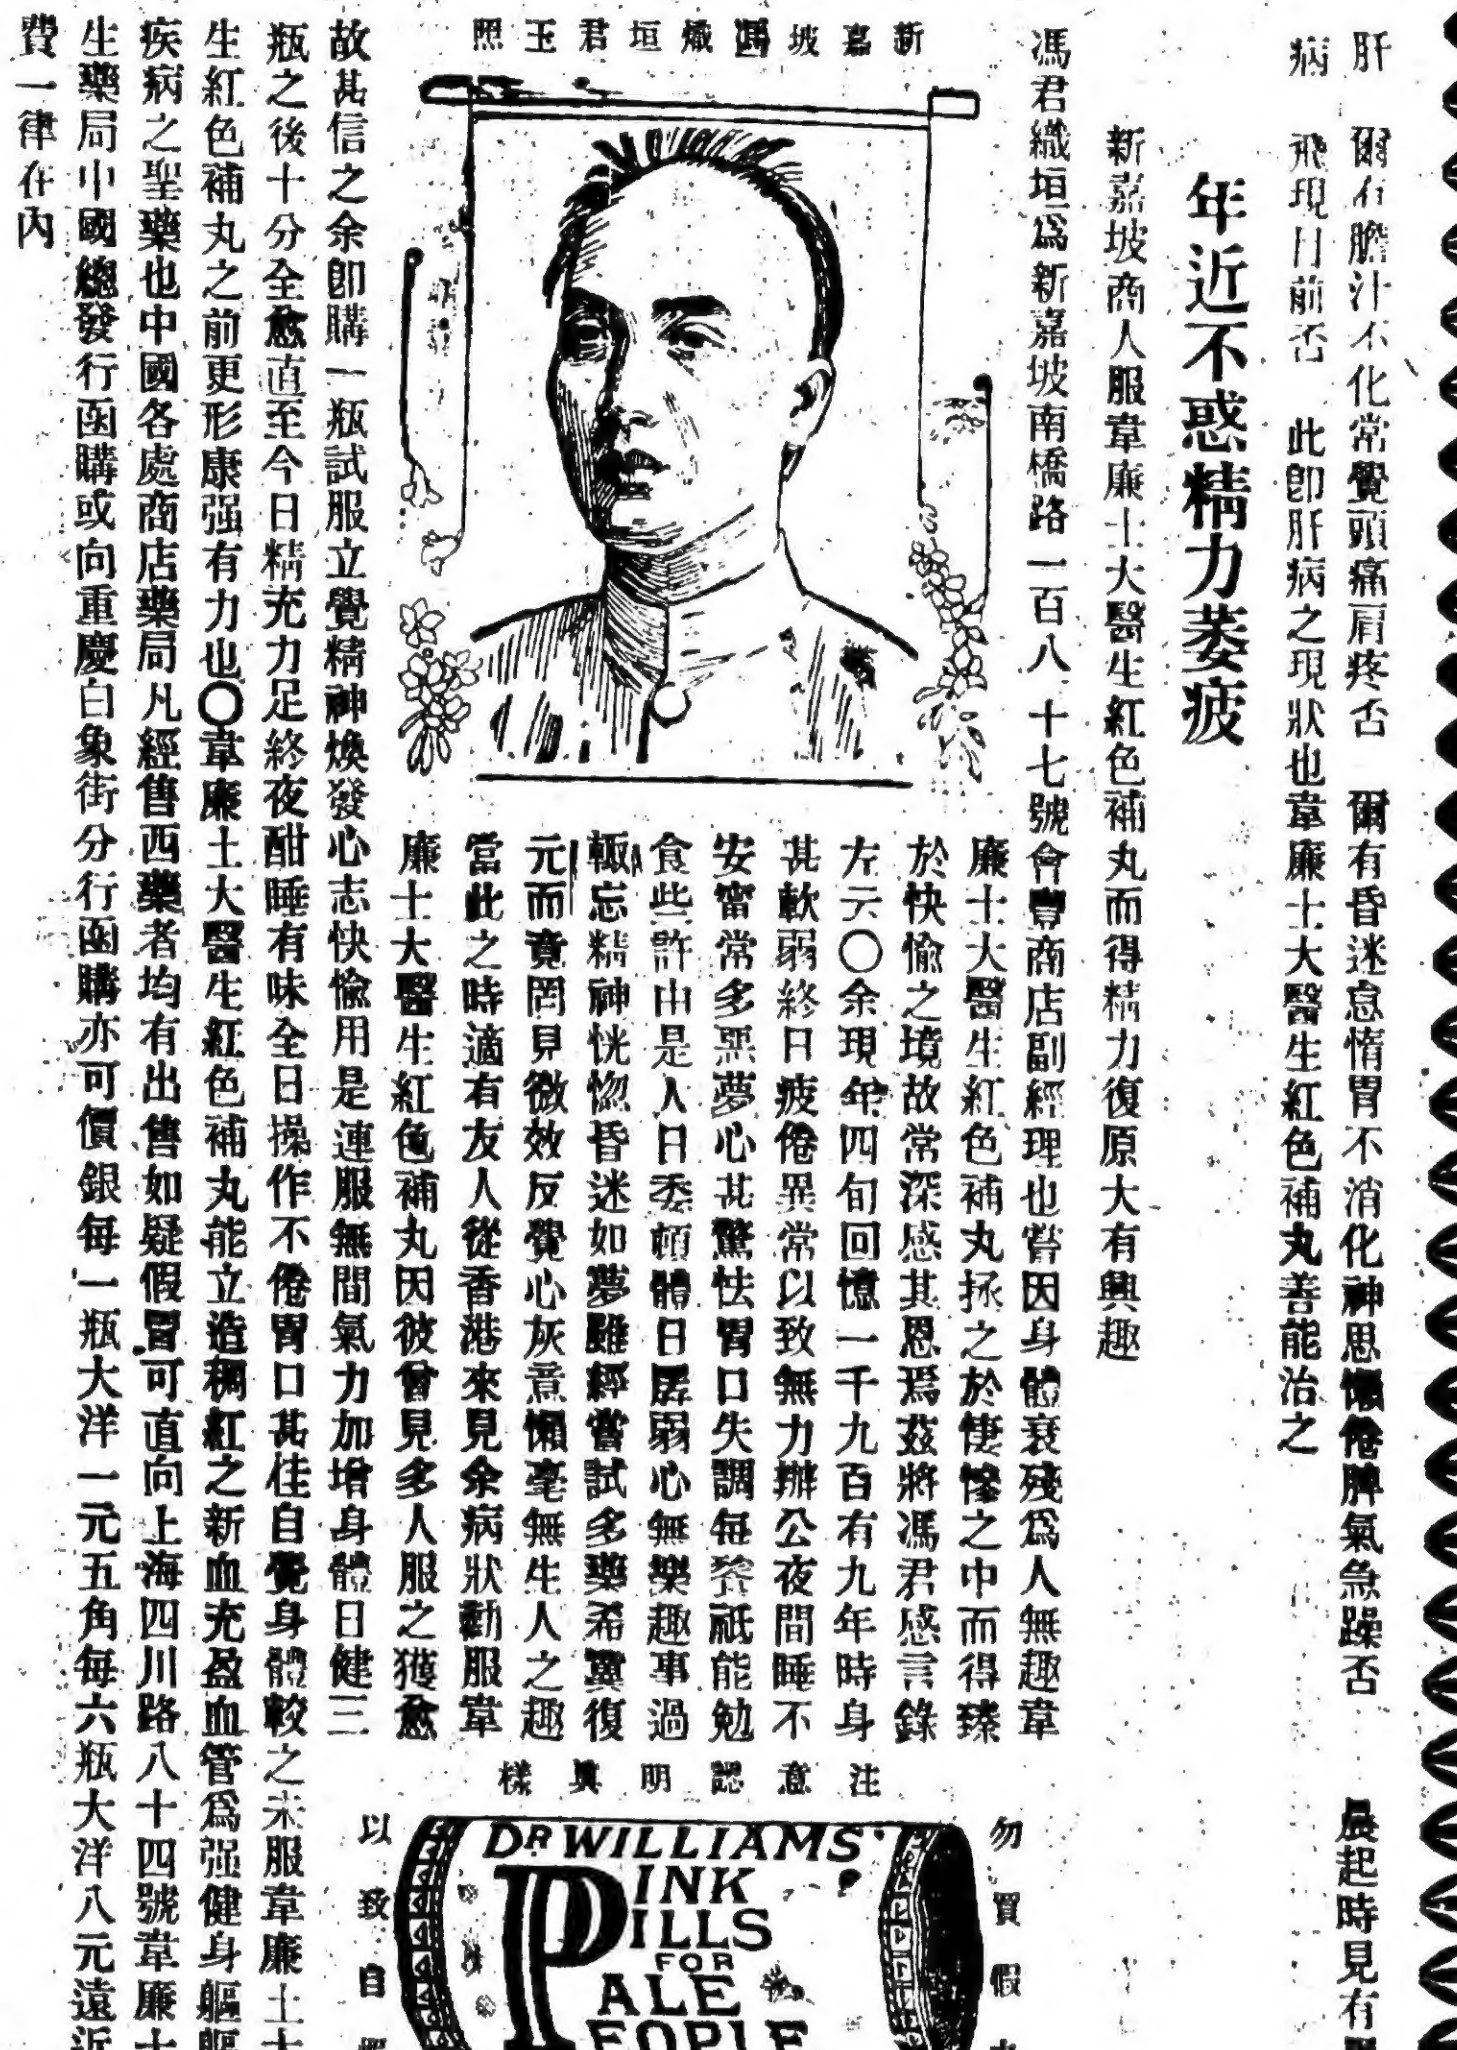 肝　爾有膽汁不化常覺頭痛肩疼否　爾有昏迷怠惰胃不消化神思懶倦脾氣急躁否　晨起時見有
病　飛現目前否　此卽肝病之現狀也韋廉士大醫生紅色補丸善能治之
年近不惑精力萎疲
新嘉坡商人服韋廉士大醫生紅色補丸而得精力復原大有興趣
馮君熾垣爲新嘉坡南橋路一百八十七號會豐商店副經理也嘗因身體衰殘爲人無趣韋
廉士大醫生紅色補丸拯之於悽慘之中而得臻
於快愉之境故常深感其恩焉茲將馮君感言錄
左云〇余現年四旬回憶一千九百有九年時身
甚軟弱終日疲倦異常以致無力辦公夜間睡不
安甯常多惡夢心甚驚怯胃口失調每餐祇能勉
食些許由是人日委頓體日孱弱心無樂趣事過
輒忘精神恍惚昏迷如夢雖經嘗試多藥希冀復
元而竟罔見微效反覺心灰意懶毫無生人之趣
當此之時適有友人從香港來見余病狀勸服韋
廉士大醫生紅色補丸因彼曾見多人服之獲愈
新嘉坡馮熾垣君玉照
故甚信之余卽購一瓶試服立覺精神煥發心志快愉用是連服無間氣力加增身體日健三
瓶之後十分全愈直至今日精充力足終夜酣睡有味全日操作不倦胃口甚佳自覺身體較之未服韋廉士大
生紅色補丸之前更形康强有力也〇韋廉士大醫生紅色補丸能立造稠紅之新血充盈血管爲强健身軀
疾病之聖藥也中國各處商店藥局凡經售西藥者均有出售如疑假冒可直向上海四川路八十四號韋廉士
生藥局中國總發行函購或向重慶白象街分行函購亦可價銀每一瓶大洋一元五角每六瓶大洋八元遠近
費一律在內
注意認明眞樣
勿買假
以致自
DR WILLIAMS'
PINK
PILLS
FOR
PALE
PEOPLE